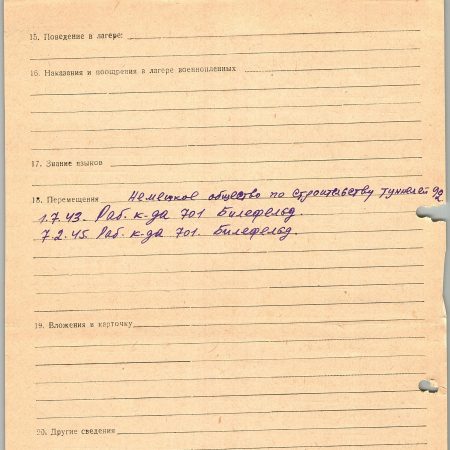 15. Поведение в лагере:
16. Наказания и поощрения в лагере военнопленных
17. Знание языков
18. Перемещения Немецкое общество по строительству туннелей
1.7.43. Раб. к-да 701 Билефельд.
7.2.45. Раб. к-да 701. Билефельд.
19. Вложения в карточку
20. Другие сведения